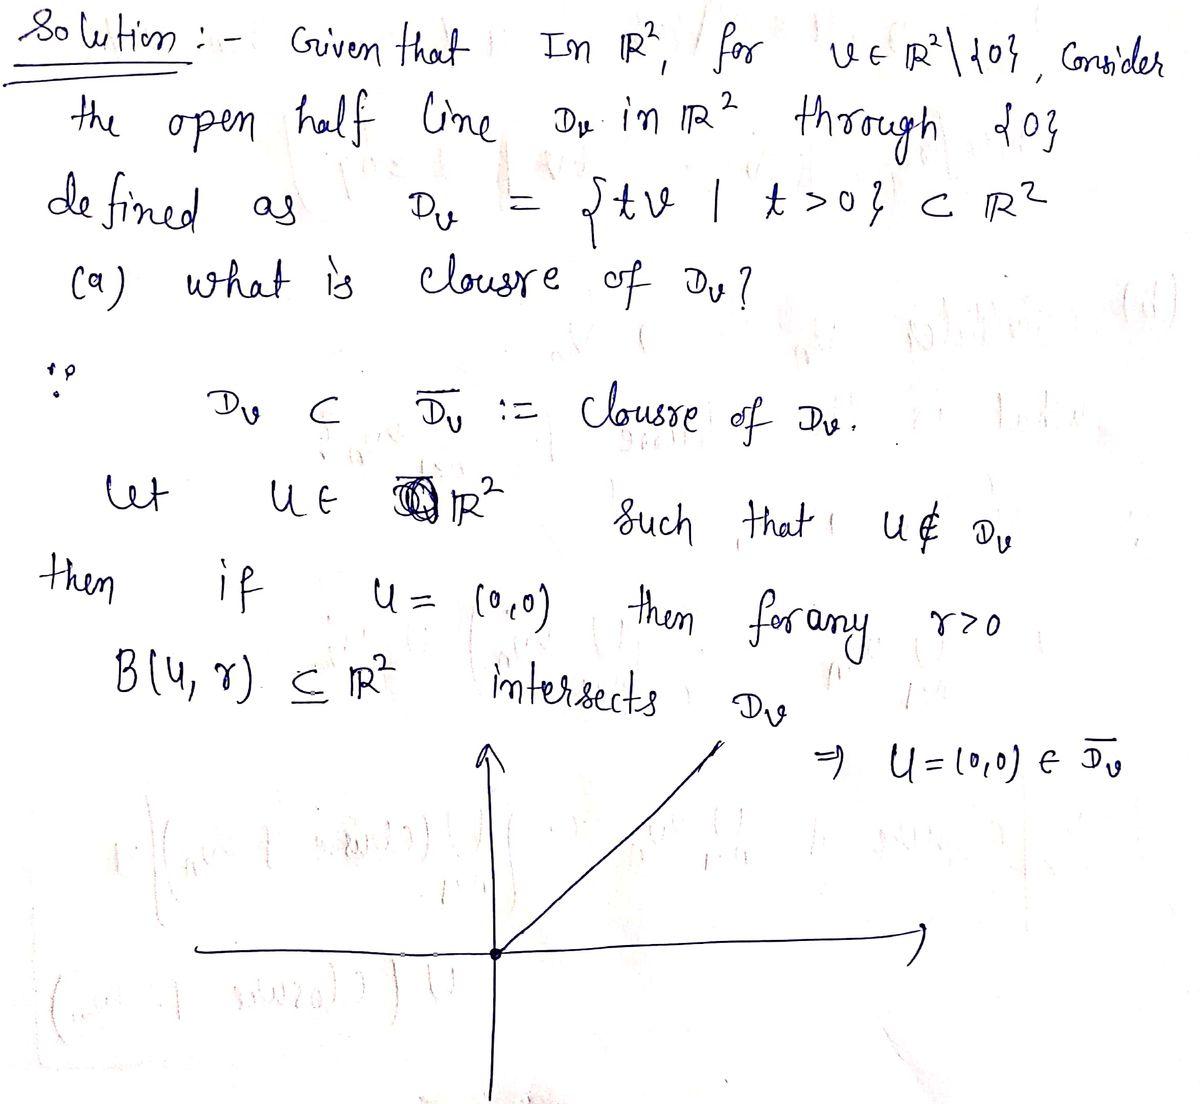 Solution :- Given that In ℝ², for v ∈ ℝ²\{0}, Consider
the open half line Dv in ℝ² through {0}
defined as Dv = {tv | t > 0} ⊂ ℝ²
(a) what is clousre of Dv?
∵ Dv ⊂ D̅v := Clousre of Dv.
Let u ∈ ℝ² Such that u ∉ Dv
then if u = (0,0) then for any r>0
B(u, r) ⊆ ℝ² intersects Dv
⇒ u = (0,0) ∈ D̅v